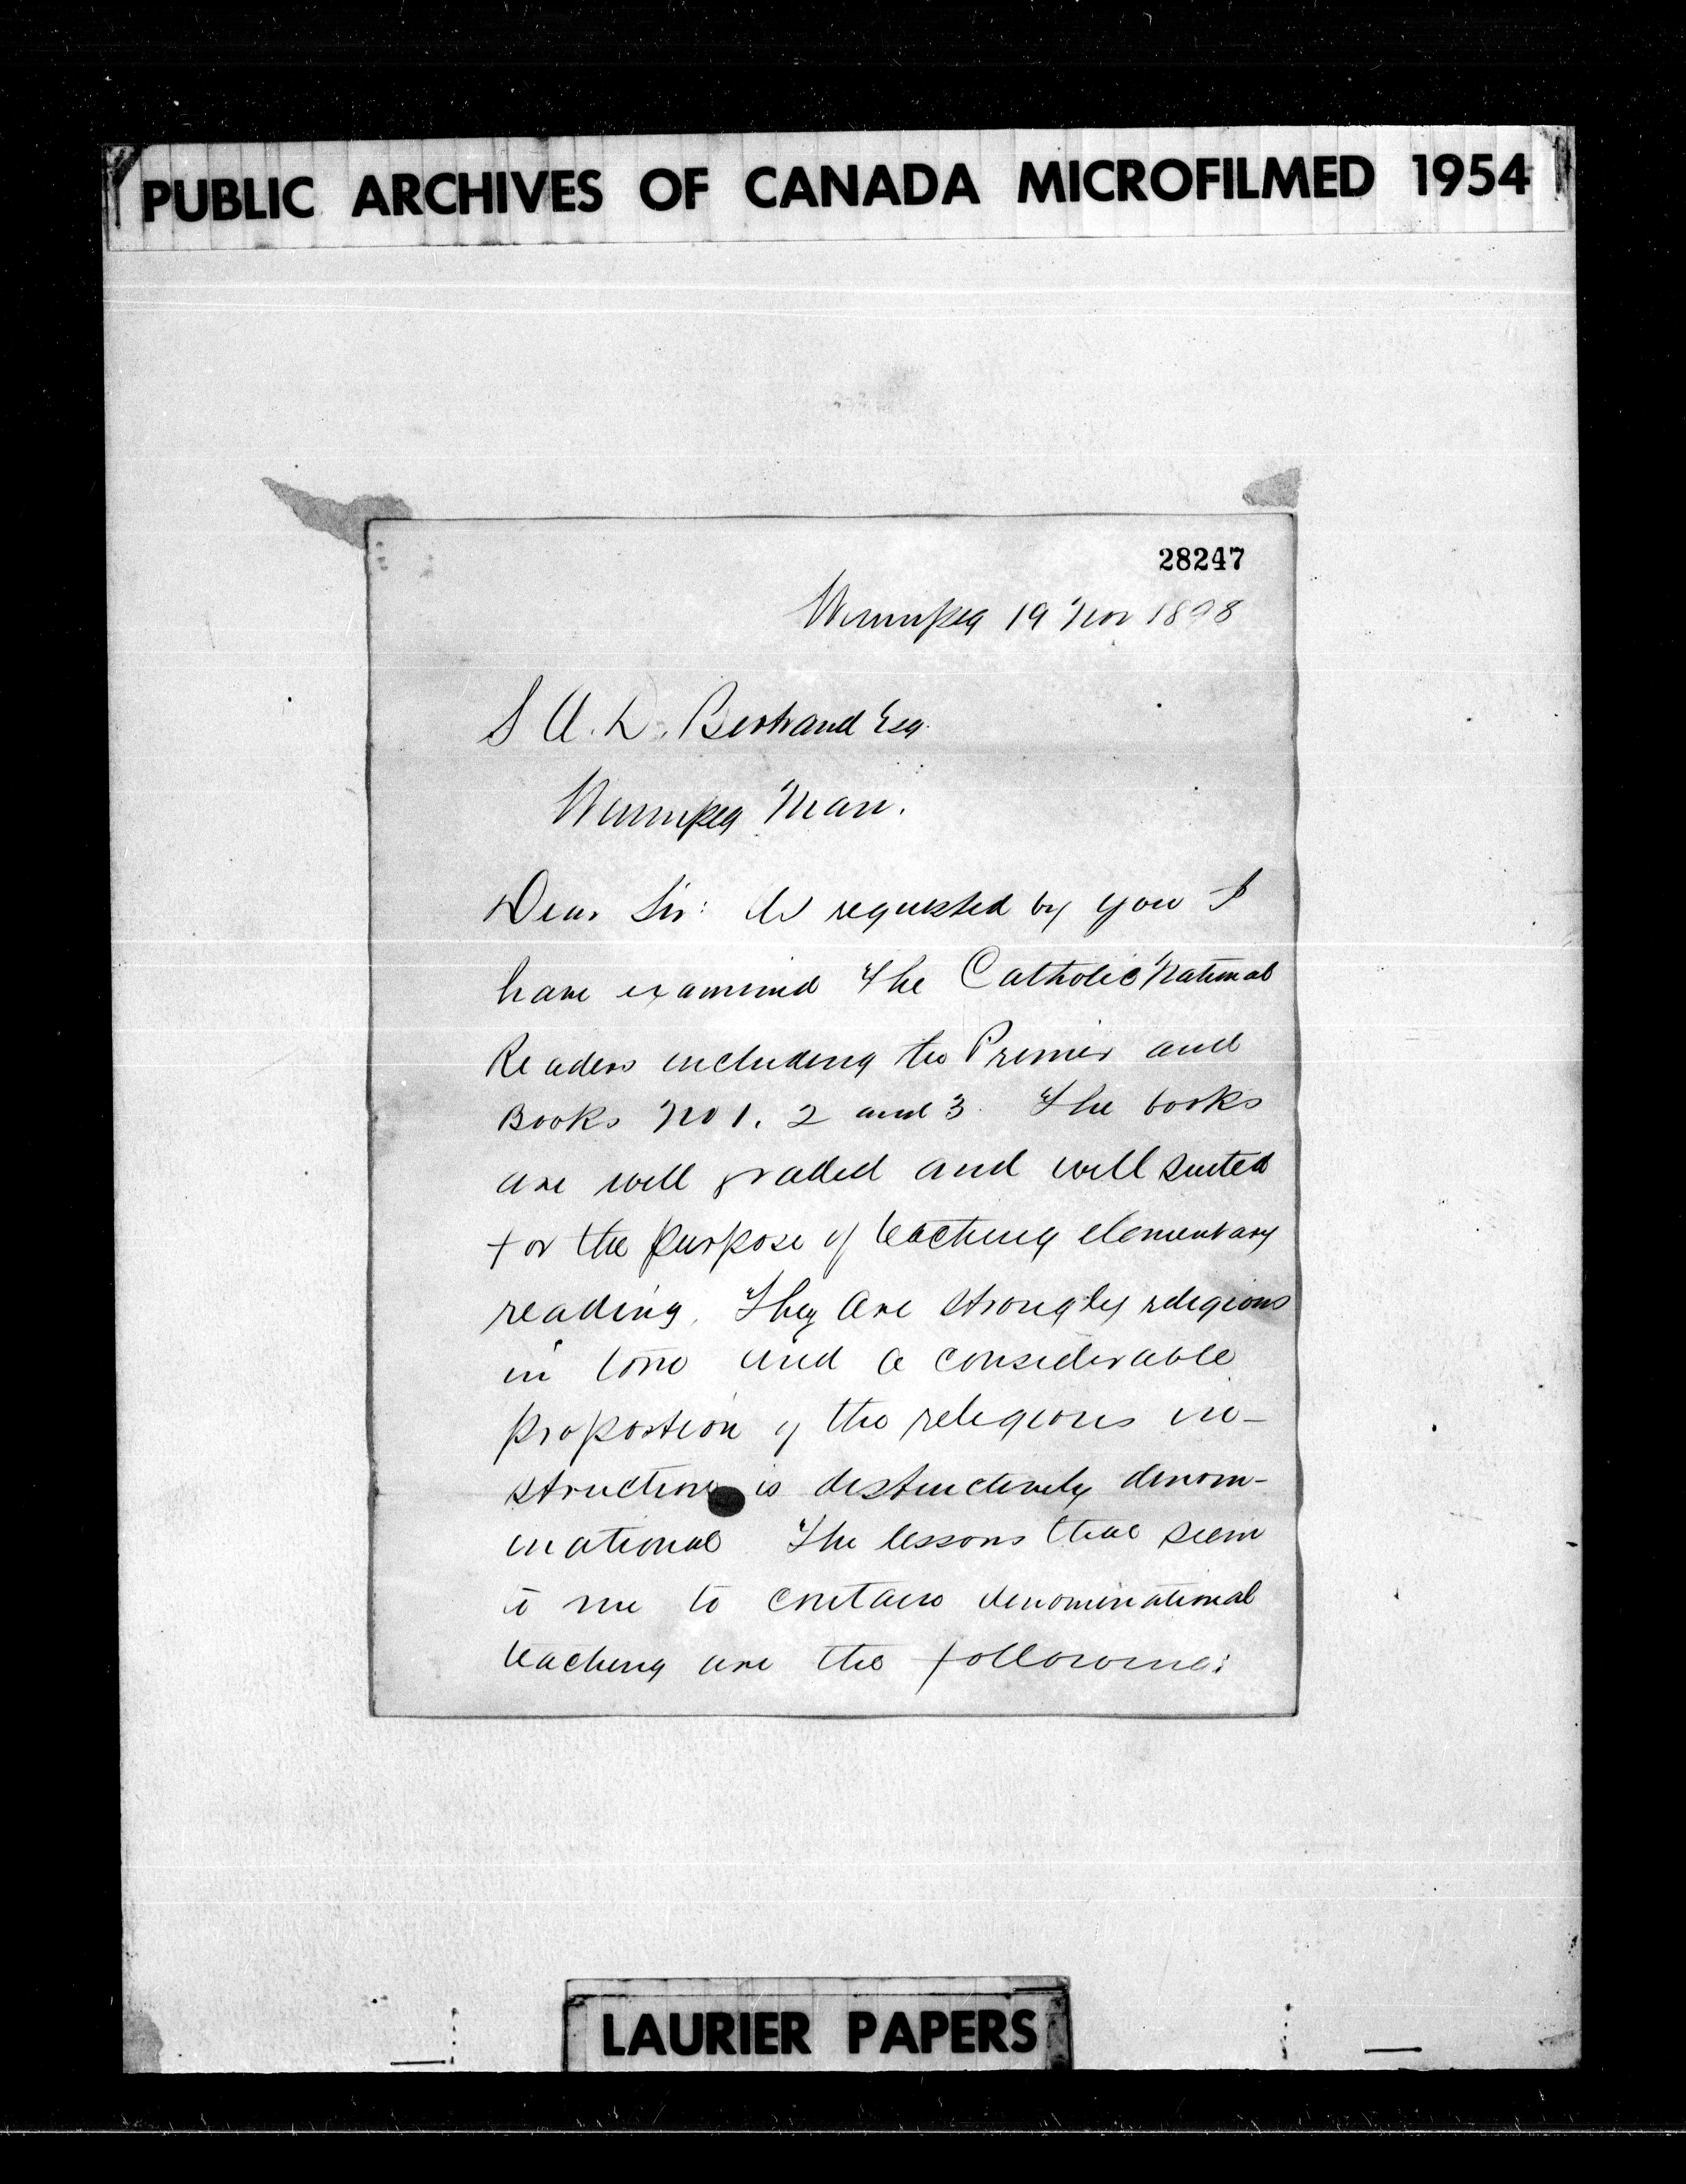 PUBLIC ARCHIVES OF CANADA MICROFILMED 1954
28247
Winnipeg 19 Nov 1898
S A. D. Bertrand Esq.
Winnipeg Man.
Dear Sir: As requested by you I
have examined the Catholic National
Readers including the Primer and
Books No 1. 2 and 3. The books
are well graded and well suited
for the purpose of teaching elementary
reading. They are strongly religious
in tone and a considerable
proportion of the religious in-
struction is distinctively denom-
inational The lessons that seem
to me to contain denominational
teaching are the following:
LAURIER PAPERS